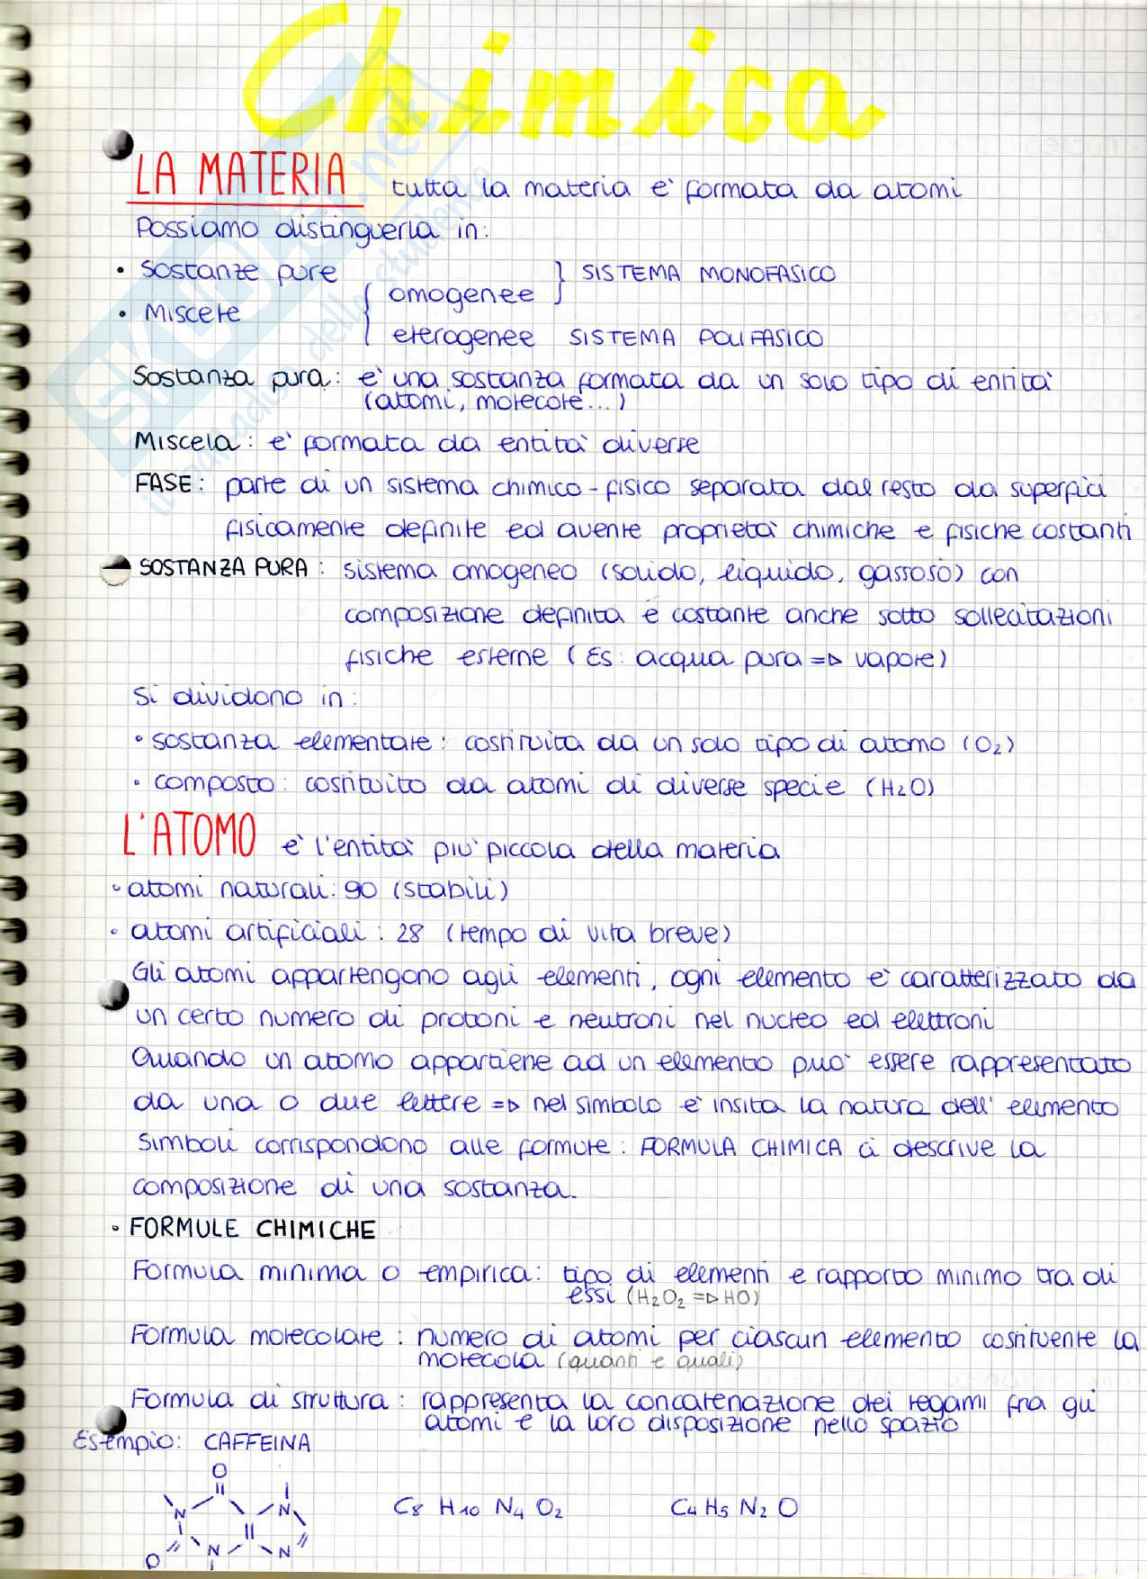 Chimica
LA MATERIA tutta la materia e' formata da atomi
Possiamo distinguerla in:
• Sostanze pure } SISTEMA MONOFASICO
• Miscele { omogenee
eterogenee SISTEMA POLIFASICO
Sostanza pura: e' una sostanza formata da un solo tipo di entita'
(atomi, molecole...)
Miscela: e' formata da entita' diverse
FASE: parte di un sistema chimico-fisico separata dal resto da superfici
fisicamente definite ed avente proprieta' chimiche e fisiche costanti
SOSTANZA PURA: sistema omogeneo (solido, liquido, gassoso) con
composizione definita e costante anche sotto sollecitazioni
fisiche esterne (Es: acqua pura => vapore)
Si dividono in:
• sostanza elementare: costituita da un solo tipo di atomo (O₂)
• composto: costituito da atomi di diverse specie (H₂O)
L'ATOMO e' l'entita' piu' piccola della materia
• atomi naturali: 90 (stabili)
• atomi artificiali: 28 (tempo di vita breve)
Gli atomi appartengono agli elementi, ogni elemento e' caratterizzato da
un certo numero di protoni e neutroni nel nucleo ed elettroni
Quando un atomo appartiene ad un elemento puo' essere rappresentato
da una o due lettere => nel simbolo e' insita la natura dell' elemento
Simboli corrispondono alle formule: FORMULA CHIMICA ci descrive la
composizione di una sostanza.
• FORMULE CHIMICHE
Formula minima o empirica: tipo di elementi e rapporto minimo tra di
essi (H₂O₂ => HO)
Formula molecolare: numero di atomi per ciascun elemento costituente la
molecola (quanti e quali)
Formula di struttura: rappresenta la concatenazione dei legami fra gli
atomi e la loro disposizione nello spazio
Esempio: CAFFEINA
O
N N C₈ H₁₀ N₄ O₂ C₄ H₅ N₂ O
O N N